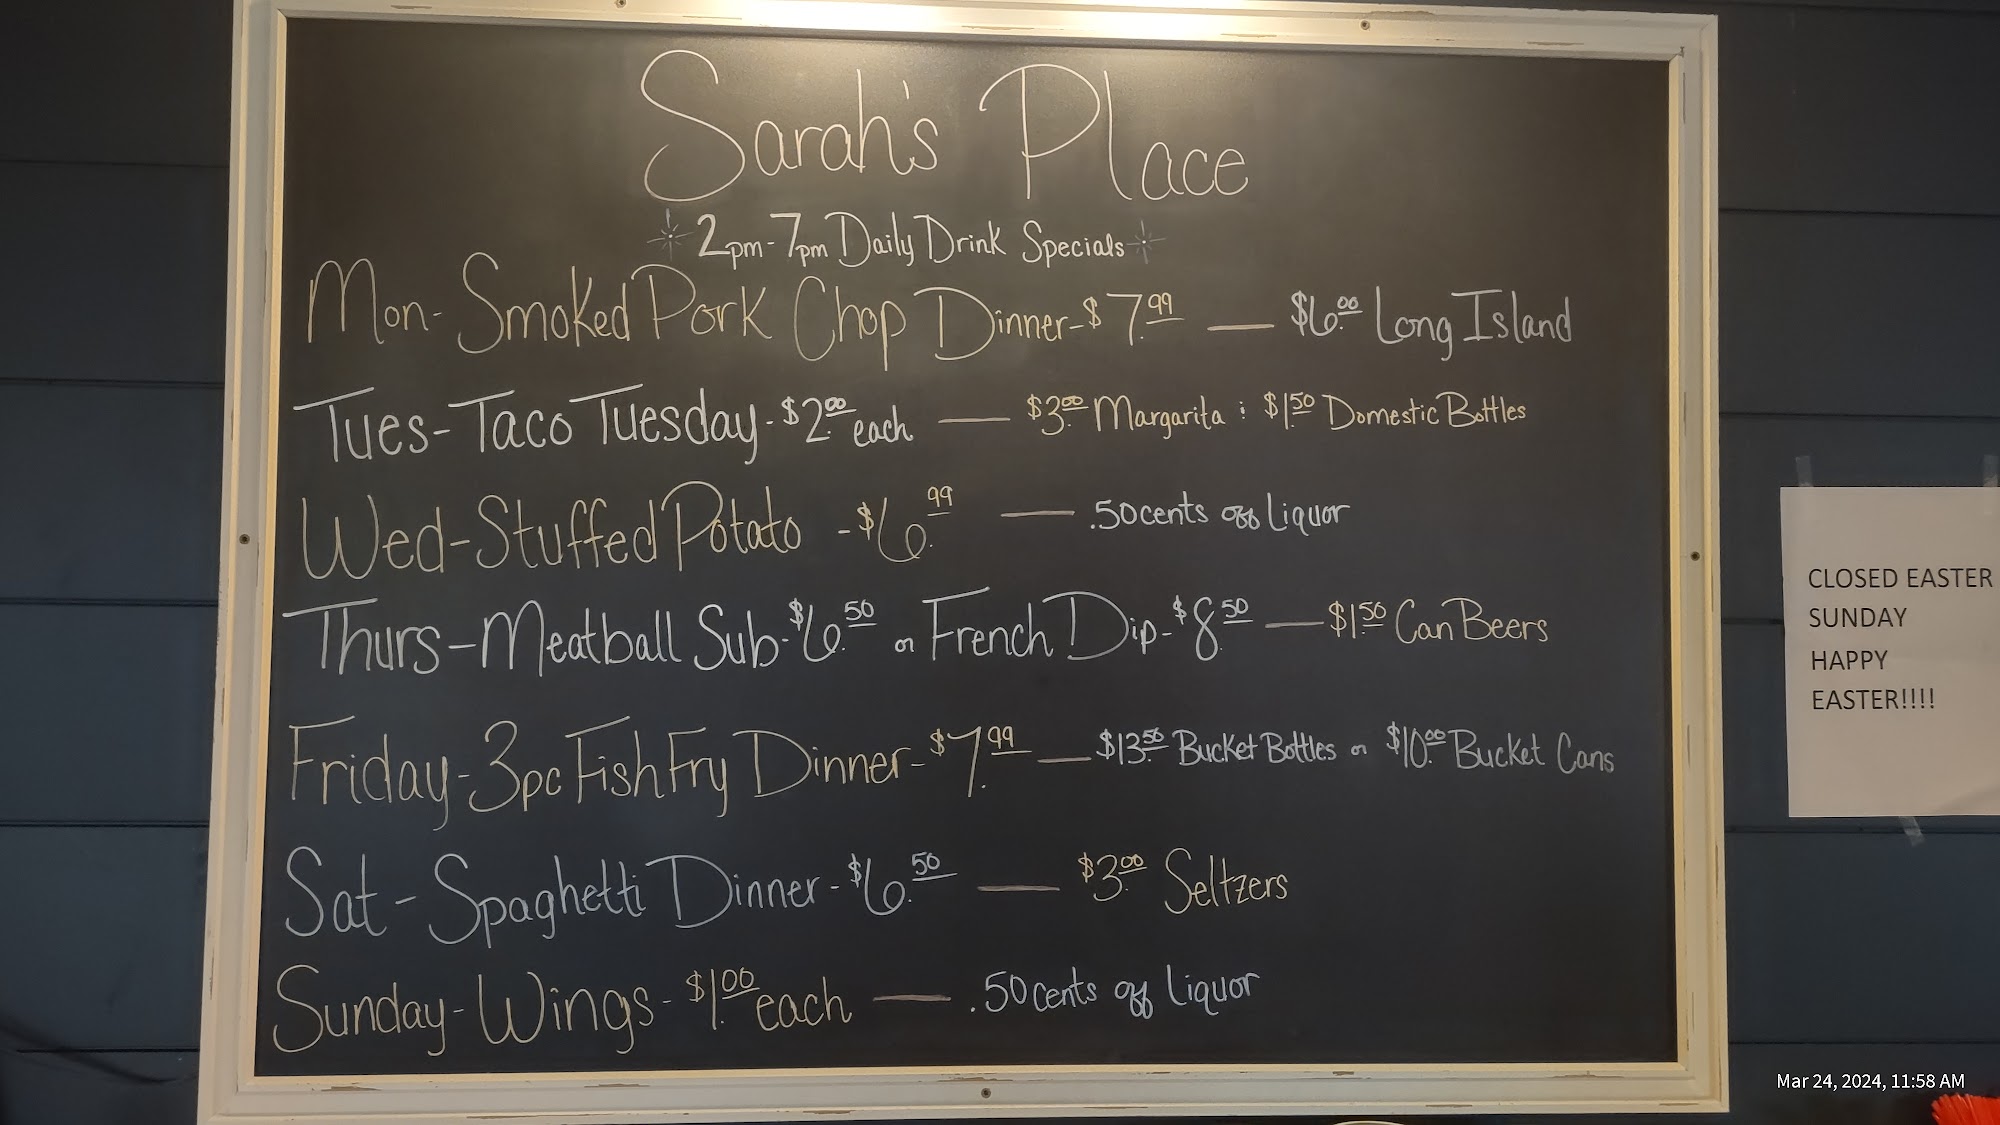 Sarah's Place
2pm-7pm Daily Drink Specials
Mon-Smoked Pork Chop Dinner-$7.99 — $6.00 Long Island
Tues-Taco Tuesday-$2.00 each — $3.00 Margarita : $1.50 Domestic Bottles
Wed-Stuffed Potato -$6.99 — .50cents off Liquor
Thurs-Meatball Sub-$6.50 or French Dip-$8.50 — $1.50 Can Beers
Friday-3pc Fish Fry Dinner-$7.99 — $13.50 Bucket Bottles or $10.00 Bucket Cans
Sat-Spaghetti Dinner-$6.50 — $3.00 Seltzers
Sunday-Wings-$1.00 each — .50cents off Liquor
CLOSED EASTER
SUNDAY
HAPPY
EASTER!!!!
Mar 24, 2024, 11:58 AM